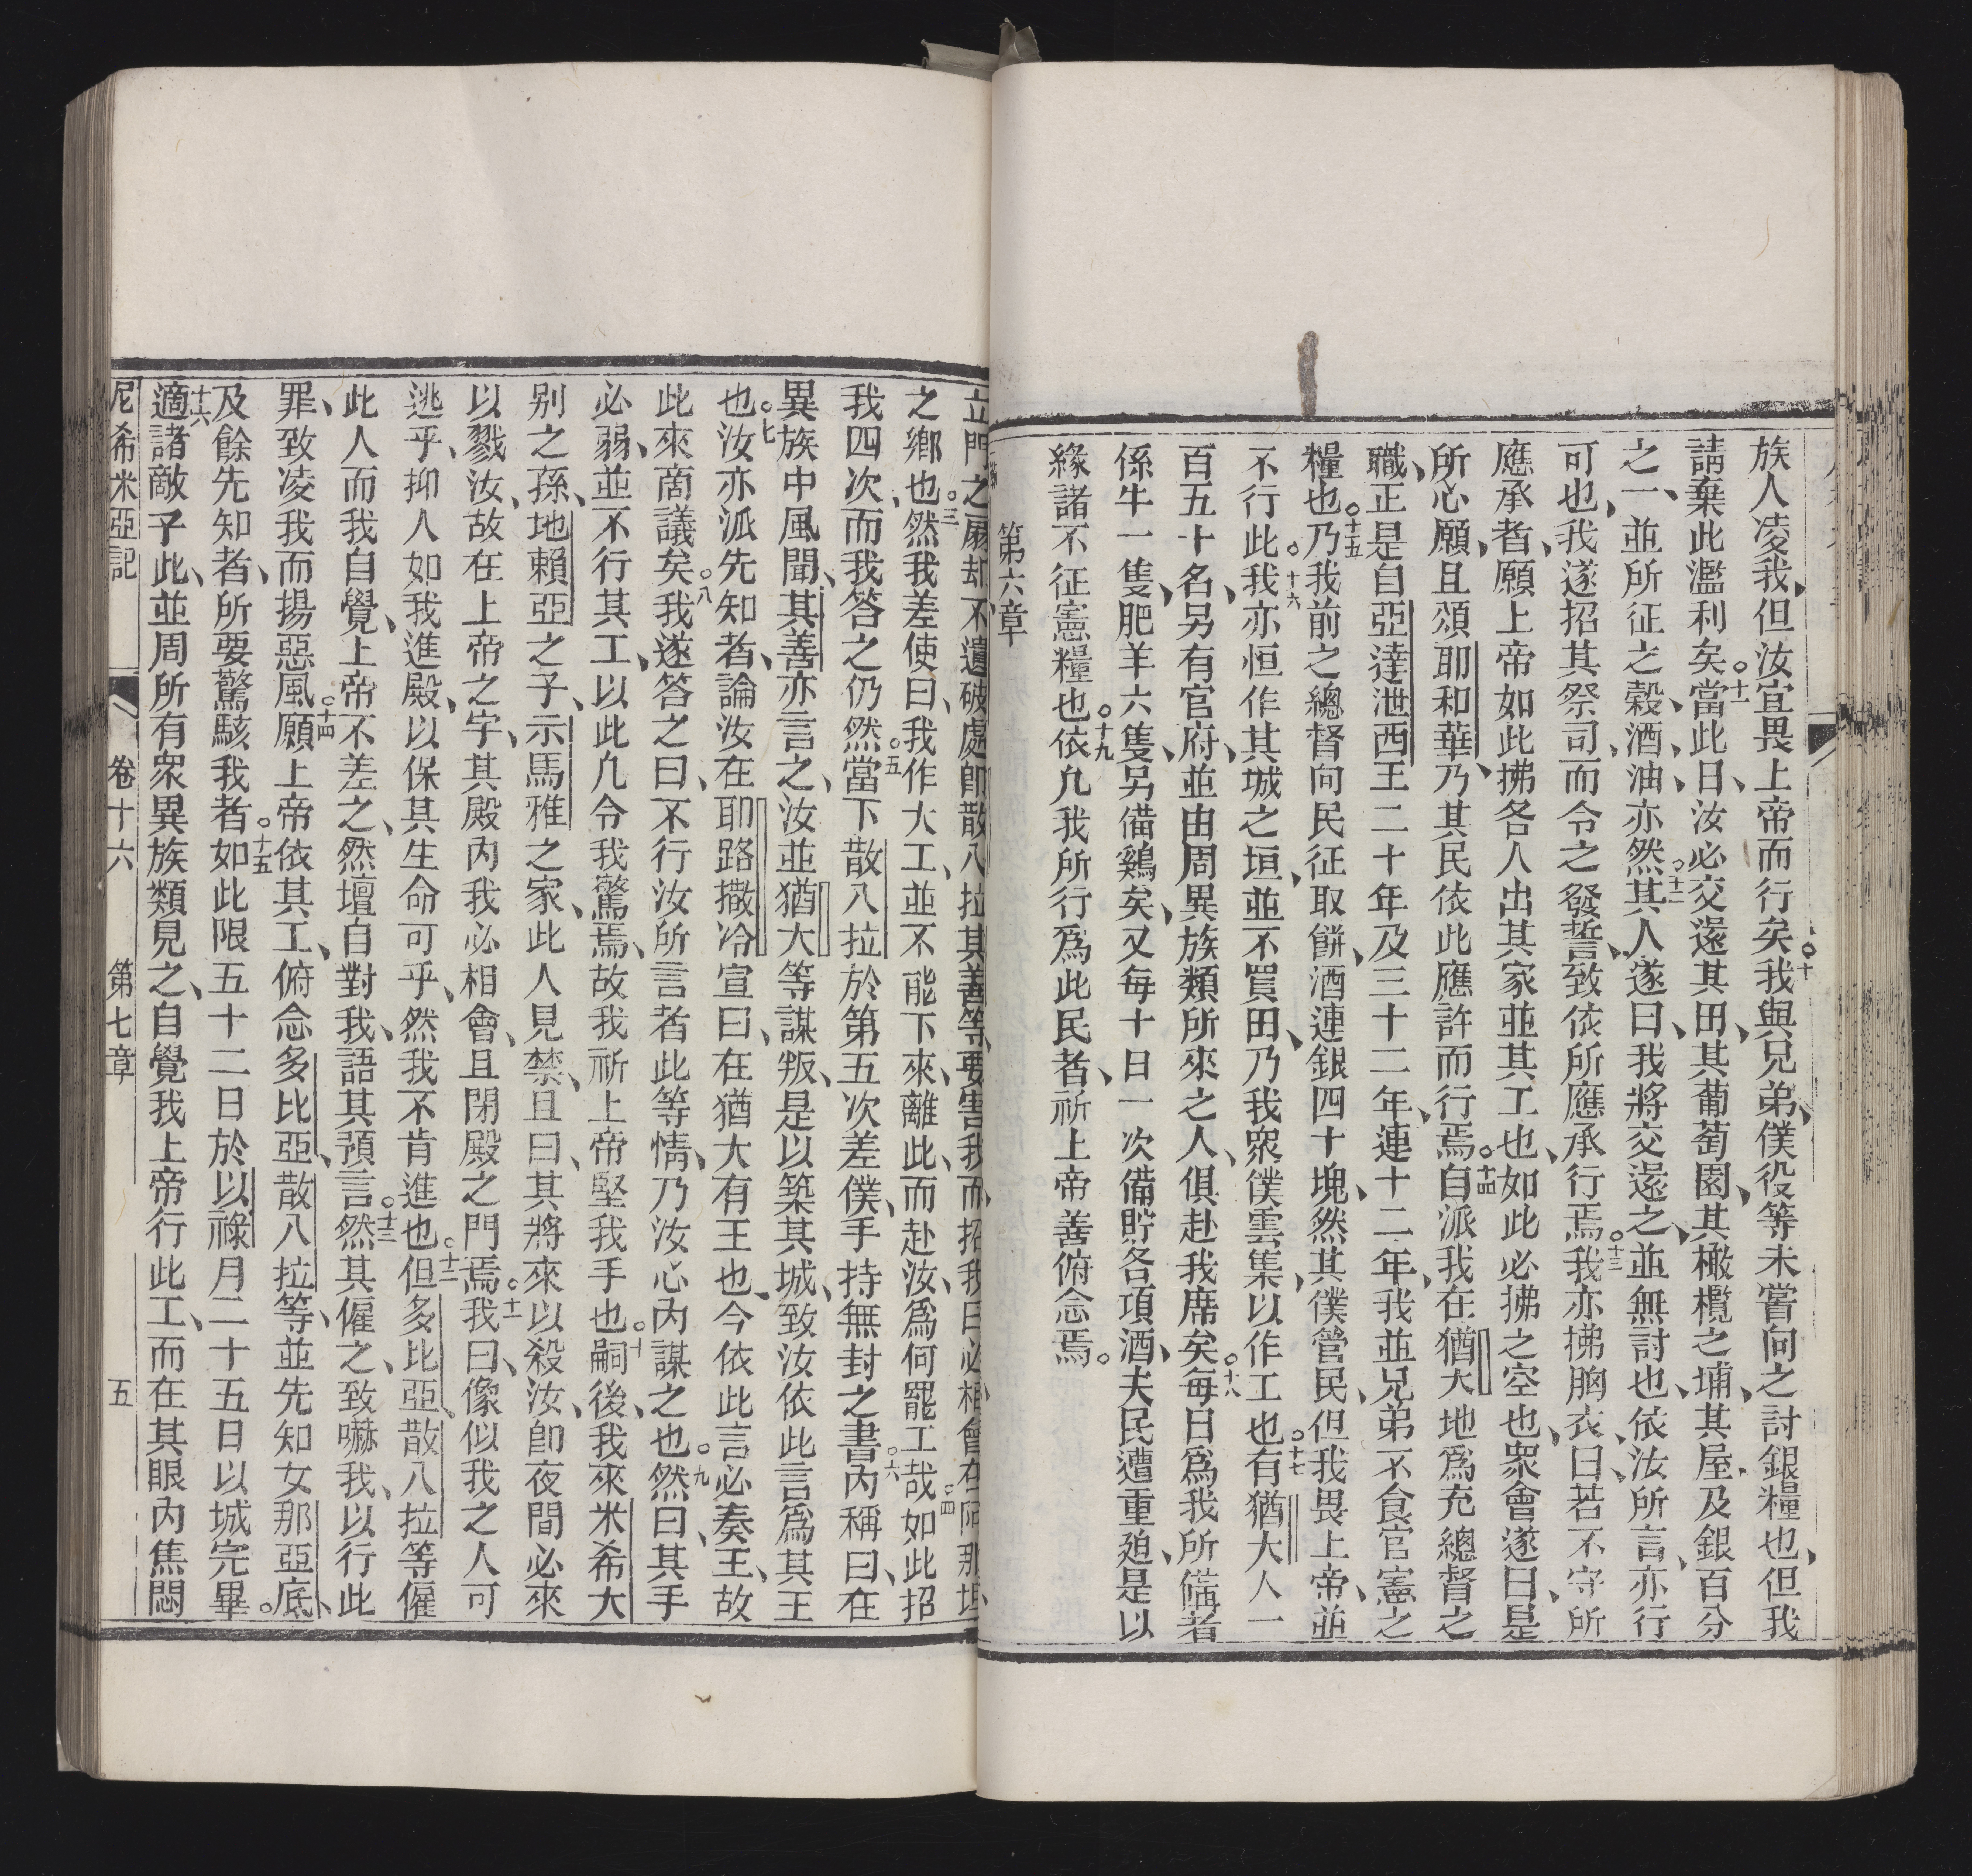 族人凌我、但汝宜畏上帝而行矣。十我與兄弟、僕役等未嘗向之討銀糧也、但我
請棄此濫利矣。十一當此日、汝必交還其田、其葡萄園、其橄欖之埔、其屋、及銀百分
之一、並所征之穀、酒、油亦然。十二其人遂曰、我將交還之、並無討也、依汝所言、亦行
可也、我遂招其祭司、而令之發誓、致依所應承行焉。十三我亦拂胸衣、曰、若不守所
應承者、願上帝如此拂各人出其家並其工也、如此必拂之空也、眾會遂曰、是
所心願、且頌耶和華、乃其民依此應許而行焉。十四自派我在猶大地爲充總督之
職、正是自亞達泄西王二十年及三十二年、連十二年、我並兄弟不食官憲之
糧也。十五乃我前之總督向民征取餅、酒連銀四十塊、然其僕管民、但我畏上帝、並
不行此。十六我亦恒作其城之垣、並不買田、乃我眾僕雲集、以作工也。十七有猶大人一
百五十名、另有官府、並由周異族類所來之人、俱赴我席矣。十八每日爲我所備者
係牛一隻、肥羊六隻、另備鷄矣、又每十日一次備貯各項酒、夫民遭重廹、是以
緣諸不征憲糧也。十九依凢我所行爲此民者、祈上帝善俯念焉。
第六章
立門之扇、却不遺破處、卽散八拉其善等、要害我、而招我曰、必相會在阿那垣
之鄉也。三然我差使曰、我作大工、並不能下來、離此、而赴汝、爲何罷工哉。四如此招
我四次、而我答之仍然。五當下散八拉於第五次差僕、手持無封之書。六內稱曰、在
異族中風聞、其善亦言之、汝並猶大等謀叛、是以築其城、致汝依此言爲其王
也。七汝亦派先知者、論汝在耶路撒冷宣曰、在猶大有王也、今依此言必奏王、故
此來啇議矣。八我遂答之曰、不行汝所言者此等情、乃汝心內謀之也。九然曰、其手
必弱、並不行其工、以此凢令我驚焉、故我祈上帝堅我手也。十嗣後、我來米希大
别之孫、地賴亞之子、示馬雅之家、此人見禁、且曰、其將來以殺汝、卽夜間必來
以戮汝、故在上帝之字、其殿內我必相會、且閉殿之門焉。十一我曰、像似我之人可
逃乎、抑人如我進殿、以保其生命可乎、然我不肯進也。十二但多比亞散八拉等僱
此人而我自覺、上帝不差之、然壇自對我、語其預言。十三然其僱之、致嚇我、以行此
罪、致凌我而揚惡風。十四願上帝依其工、俯念多比亞、散八拉等、並先知女那亞底、
及餘先知者、所要驚駭我者。十五如此限五十二日於以祿月二十五日以城完畢。
十六適諸敵予此、並周所有眾異族類見之、自覺我上帝行此工、而在其眼內焦悶
尼希米亞記　卷十六　第七章　五